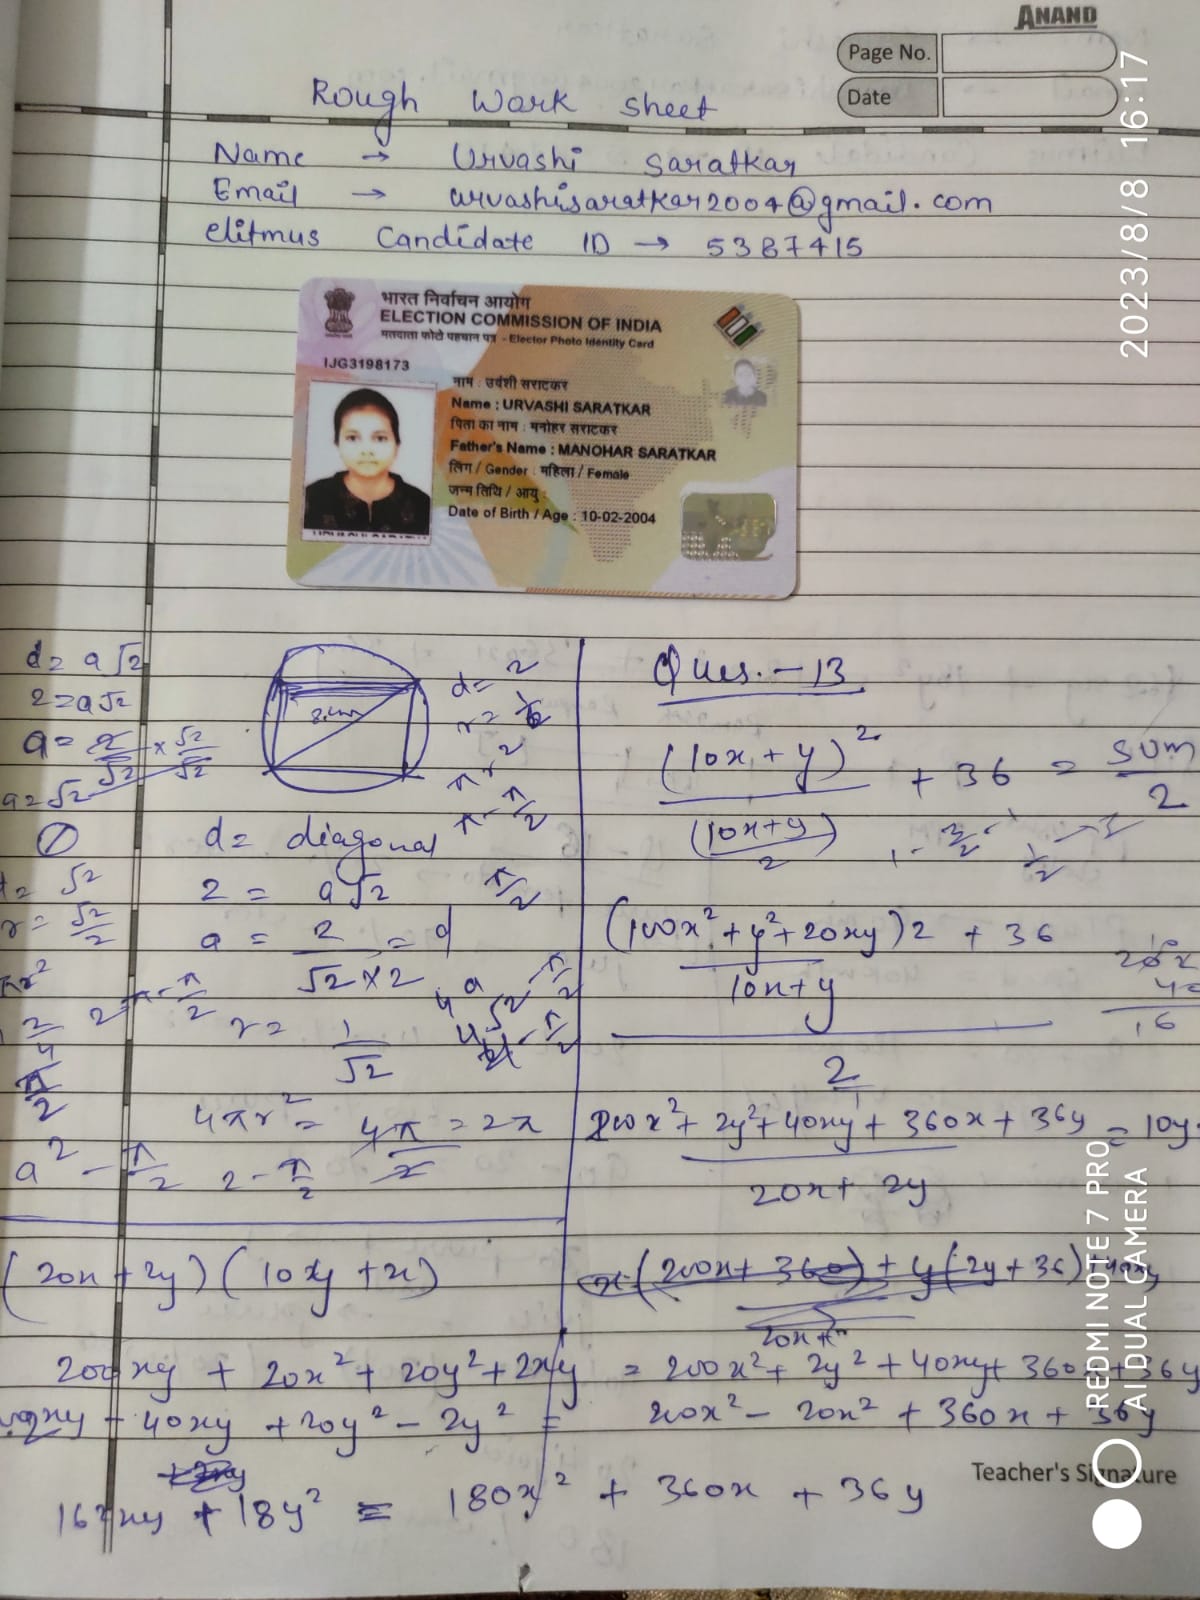 ANAND
Page No.
Date
Rough Work Sheet
Name → Urvashi Saratkar
Email → urvashisaratkar2004@gmail.com
elitmus Candidate ID → 5387415
भारत निर्वाचन आयोग
ELECTION COMMISSION OF INDIA
मतदाता फोटो पहचान पत्र - Elector Photo Identity Card
IJG3198173
नाम : उर्वशी सराटकर
Name : URVASHI SARATKAR
पिता का नाम : मनोहर सराटकर
Father's Name : MANOHAR SARATKAR
लिंग / Gender : महिला / Female
जन्म तिथि / आयु :
Date of Birth / Age : 10-02-2004
d = a√2
2 = a√2
a = 2/√2 × √2/√2
a = √2
2cm
d = 2
πr²
π - π/2
d = diagonal
2 = a√2
a = 2/(√2×2) = d
π/2
r = √2/2
r = 1/√2
4πr² = 4π/2 = 2π
a² - π/2
2 - π/2
Ques. - 13
(10x + y)²/((10x+y)/2) + 36 = sum/2
(100x² + y² + 20xy)2/(10x+y) + 36
2
200x² + 2y² + 40xy + 360x + 36y = 10y
20x + 2y
(20x + 2y) (10y + x)
x (200x + 360) + y (2y + 36) + 40xy
200xy + 20x² + 20y² + 2xy = 200x² + 2y² + 40xy + 360x + 36y
- 40xy + 20y² - 2y² = 200x² - 20x² + 360x + 36y
162xy + 18y² = 180x² + 360x + 36y
Teacher's Signature
2023/8/8 16:17
REDMI NOTE 7 PRO
AI DUAL CAMERA